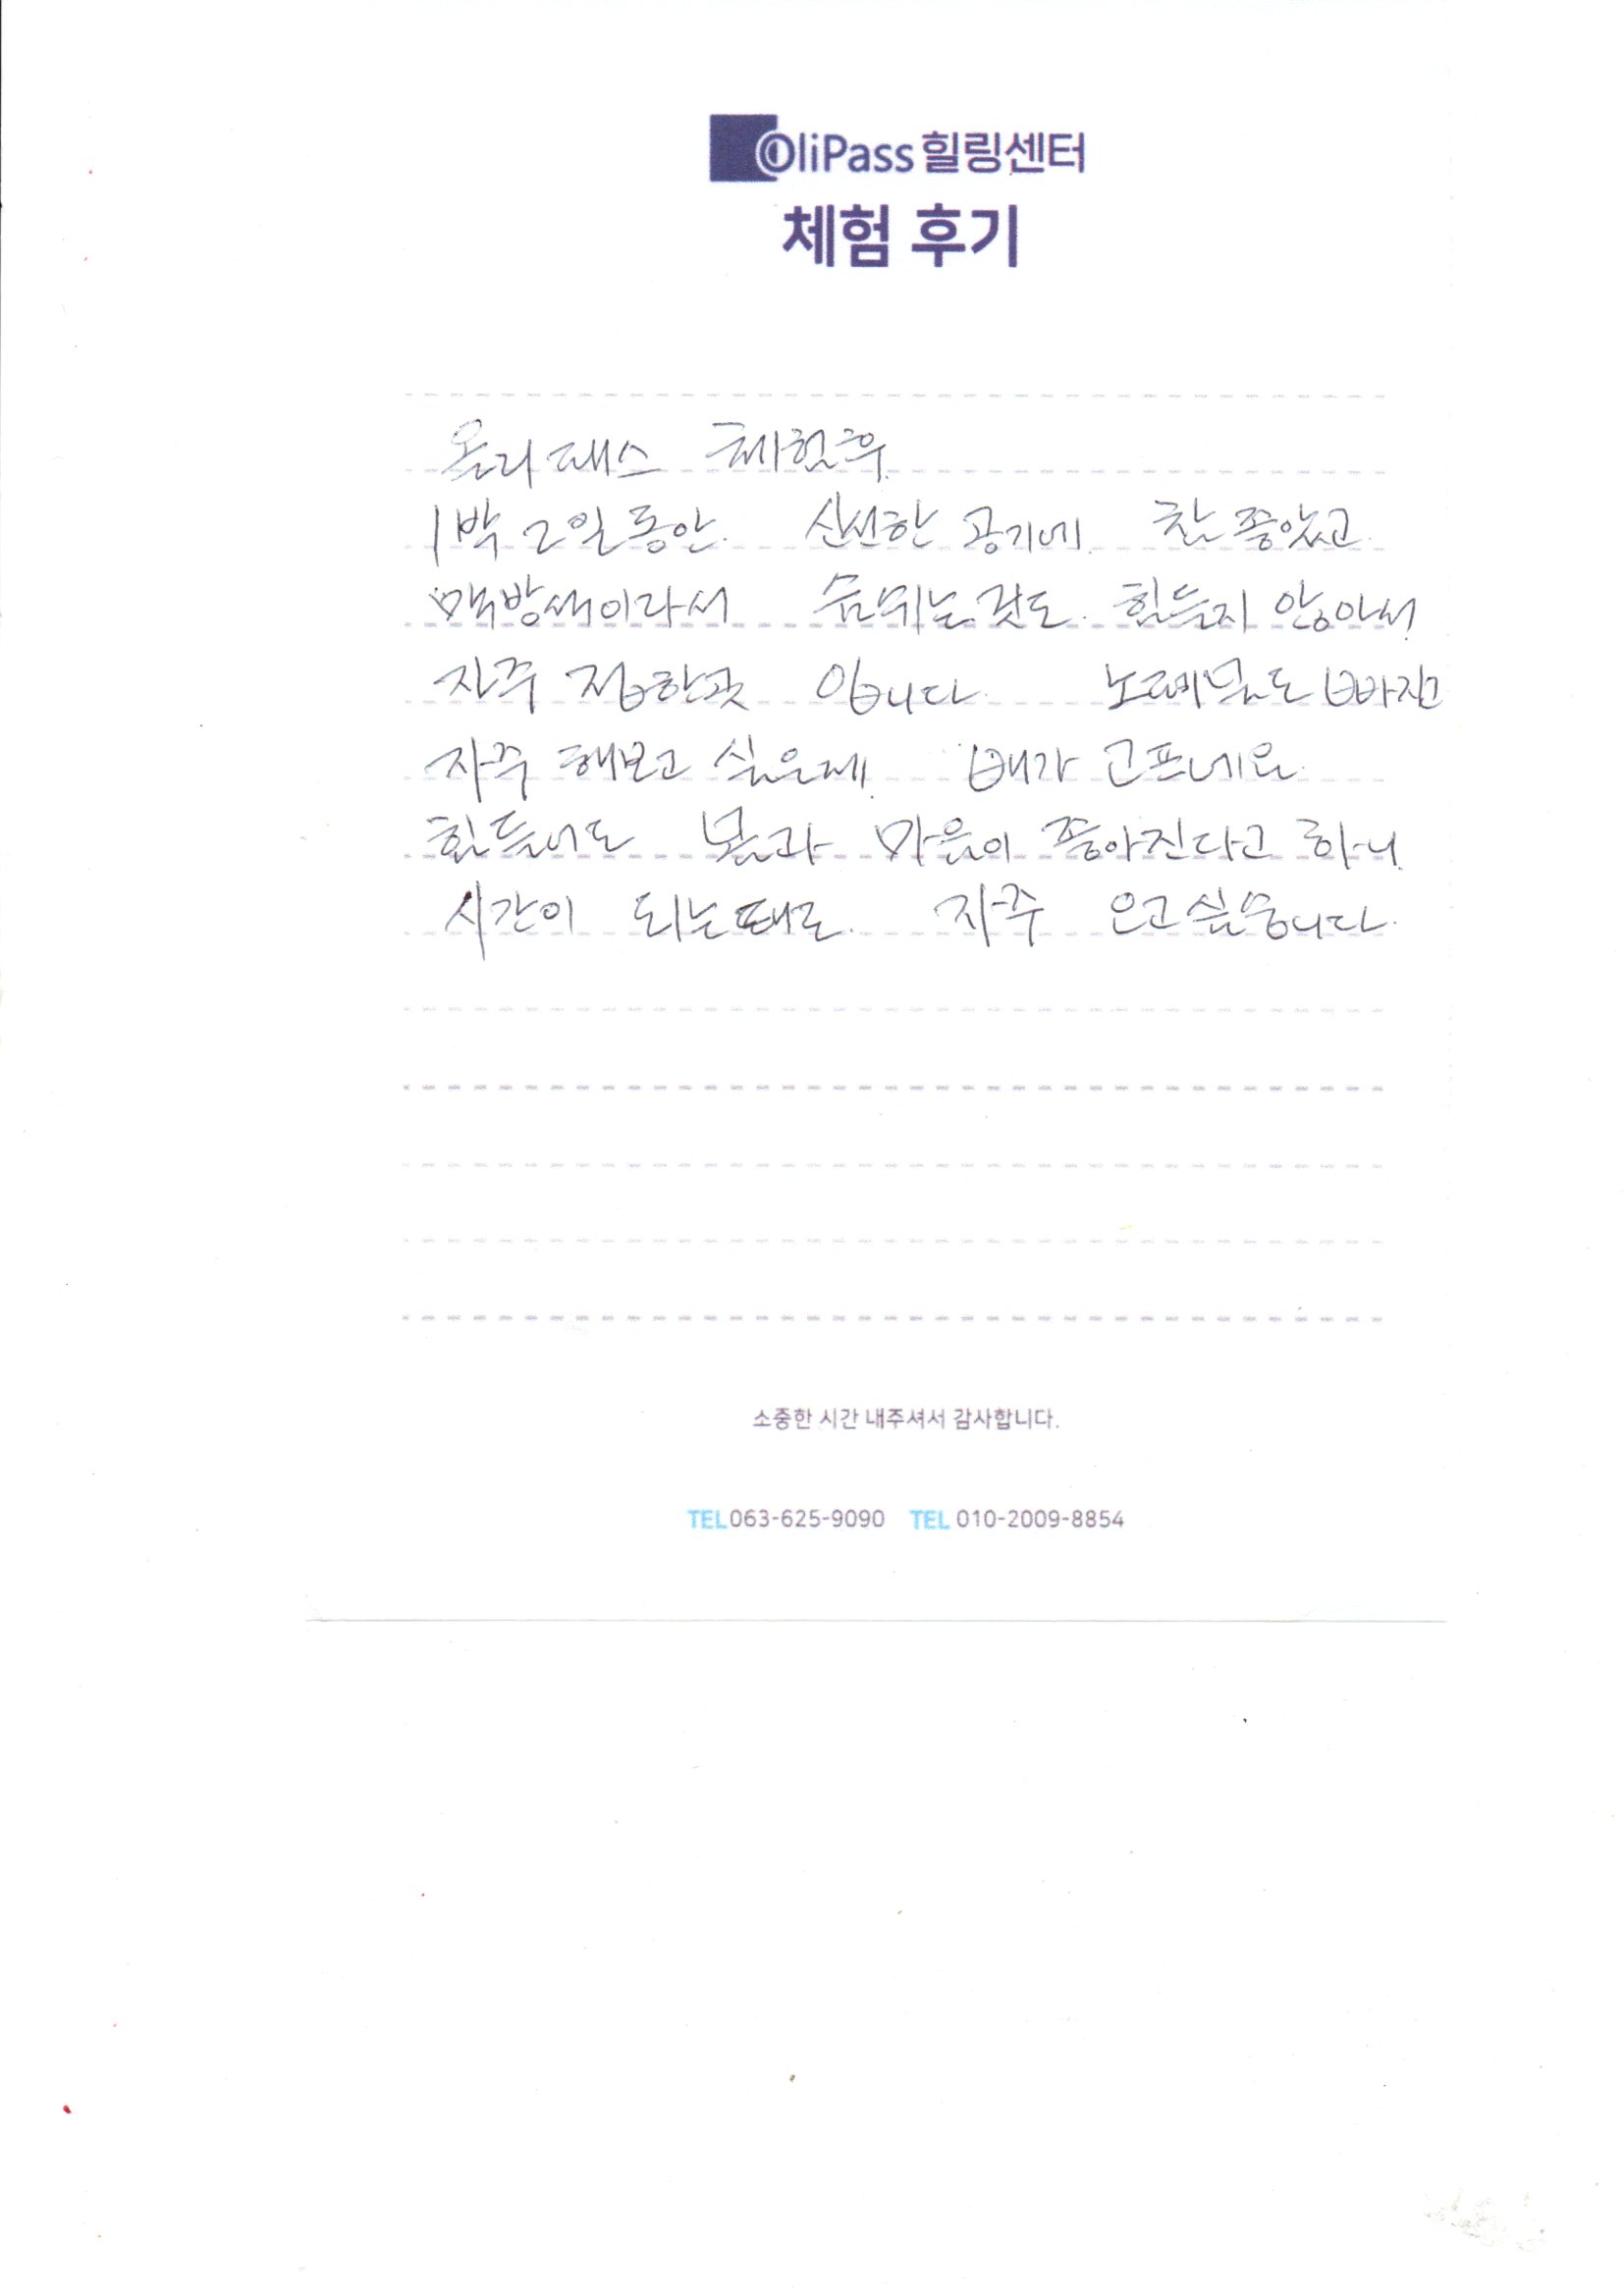 OliPass 힐링센터
체험 후기
올리패스 체험후
1박 2일동안. 신선한 공기에. 참 좋았고.
맥방석이라서 숨쉬는것도. 힘들지 않아서
자주 접한곳 입니다. 노폐물도 빠지고
자주 해보고 싶은데. 배가 고프네요.
힘들어도 몸과 마음이 좋아진다고 하니
시간이 되는때로. 자주 오고싶습니다.
소중한 시간 내주셔서 감사합니다.
TEL 063-625-9090 TEL 010-2009-8854